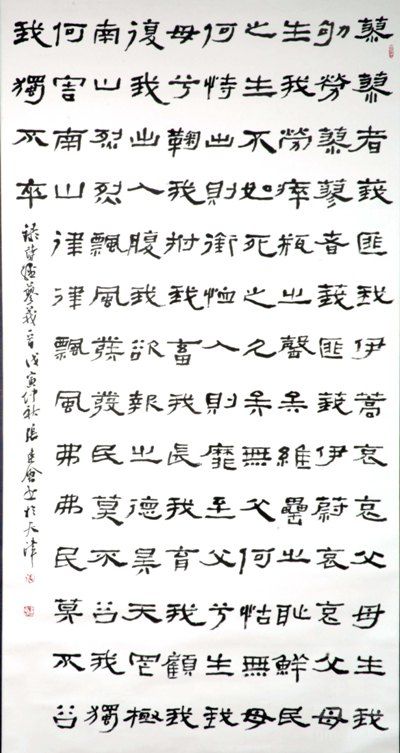 蓼蓼者莪匪我伊蒿哀哀父母生我
劬勞蓼蓼者莪匪莪伊蔚哀哀父母
生我勞瘁瓶之罄矣維罍之恥鮮民
之生不如死之久矣無父何怙無母
何恃出則銜恤入則靡至父兮生我
母兮鞠我拊我畜我長我育我顧我
復我出入腹我欲報之德昊天罔極
南山烈烈飄風發發民莫不谷我獨
何害南山律律飄風弗弗民莫不谷
我獨不卒
錄詩經蓼莪戊寅仲秋張建會書於天津